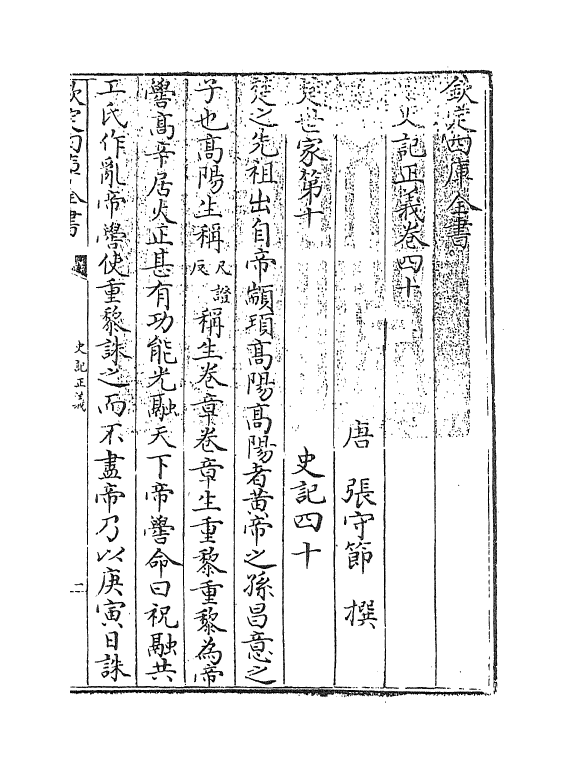 欽定四庫全書
史記正義卷四十
唐 張守節 撰
楚世家第十 史記四十
楚之先祖出自帝顓頊高陽高陽者黃帝之孫昌意之
子也高陽生稱尺證反稱生卷章卷章生重黎重黎為帝
嚳髙辛居火正甚有功能光融天下帝嚳命曰祝融共
工氏作亂帝嚳使重黎誅之而不盡帝乃以庚寅日誅
欽定四庫全書
史記正義
二